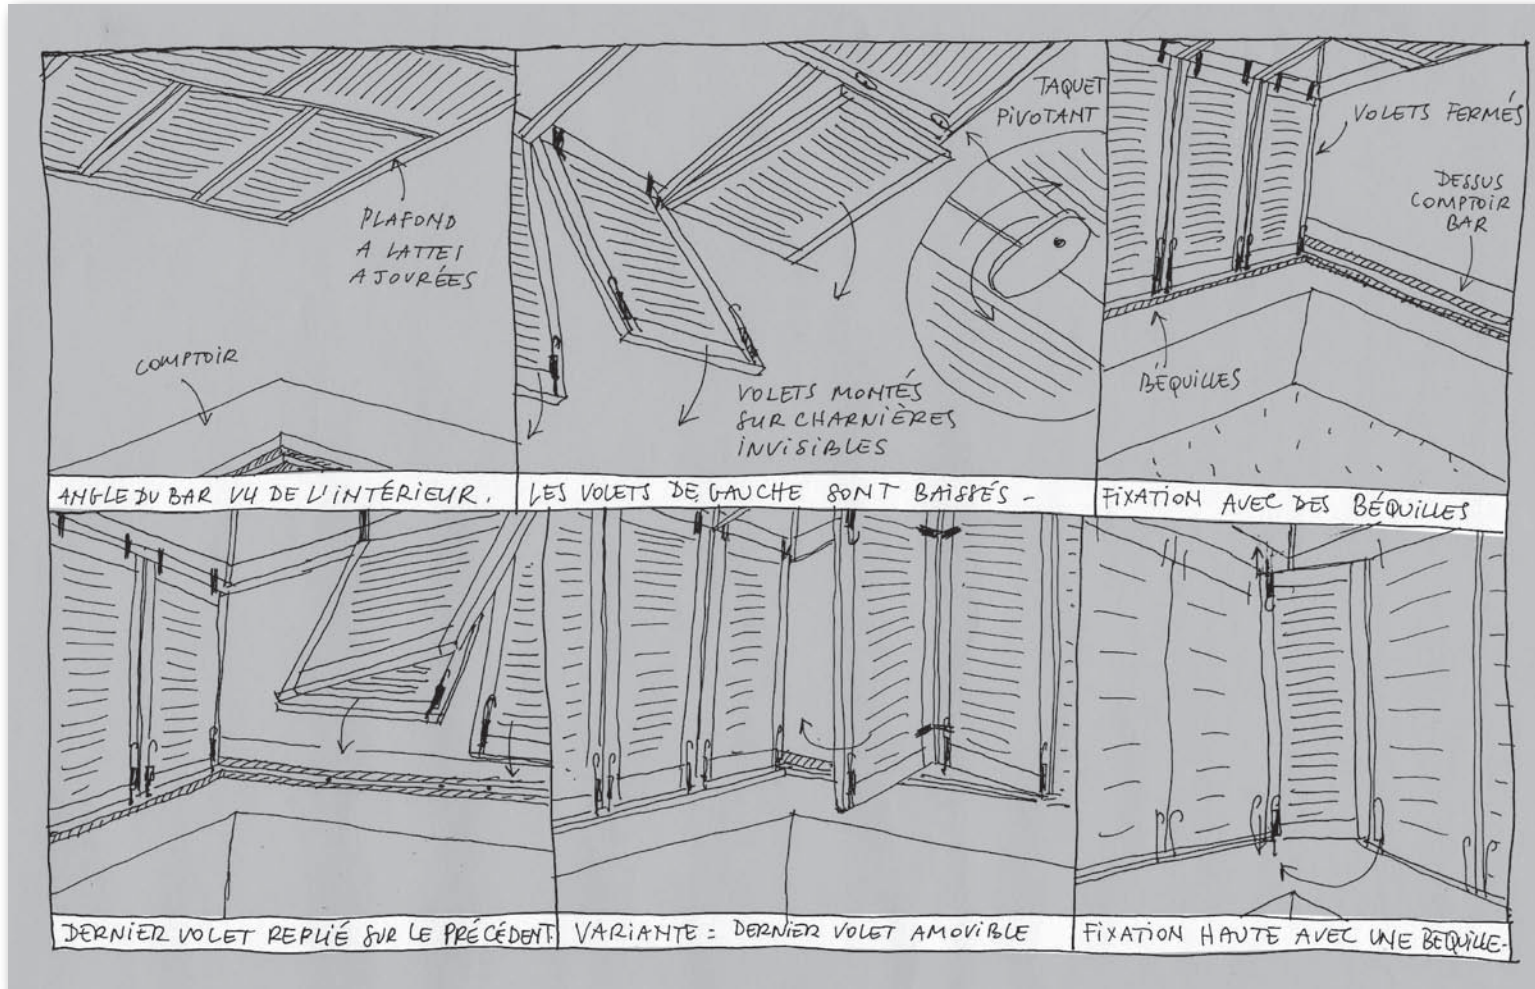 PLAFOND
A LATTES
AJOURÉES
COMPTOIR
ANGLE DU BAR VU DE L'INTÉRIEUR.
TAQUET
PIVOTANT
VOLETS MONTÉS
SUR CHARNIÈRES
INVISIBLES
LES VOLETS DE GAUCHE SONT BAISSÉS -
VOLETS FERMÉS
DESSUS
COMPTOIR
BAR
BÉQUILLES
FIXATION AVEC DES BÉQUILLES
DERNIER VOLET REPLIÉ SUR LE PRÉCÉDENT
VARIANTE = DERNIER VOLET AMOVIBLE
FIXATION HAUTE AVEC UNE BEQUILLE-